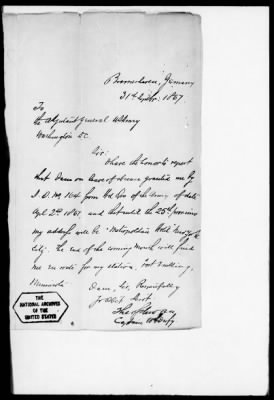 Bremerhaven, Germany
1867.
To
the Adjutant General U.S. Army
Washington D.C.
Sir:
I have the honor to report
that I am on leave of absence granted me by
S.O. No. 164 from the Hdqrs of the Army of date
1867, and that until the 25th proximo
my address will be "Metropolitan Hotel New York
City. The end of the coming month will find
me en route for my station, Fort Snelling,
Minnesota.
I am, Sir, Respectfully
Your Obdt Servt
Captain 10th Infy
THE
NATIONAL ARCHIVES
OF THE
UNITED STATES